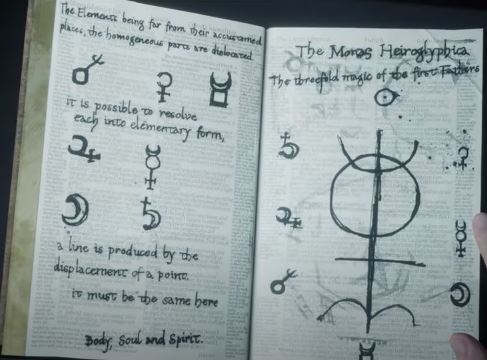 The Elements being far from their accustomed
places, the homogeneous parts are dislocated
it is possible to resolve
each into elementary form,
a line is produced by the
displacement of a point.
it must be the same here
Body, Soul and Spirit.
The Monas Heiroglyphica
The threefold magic of the first Fathers